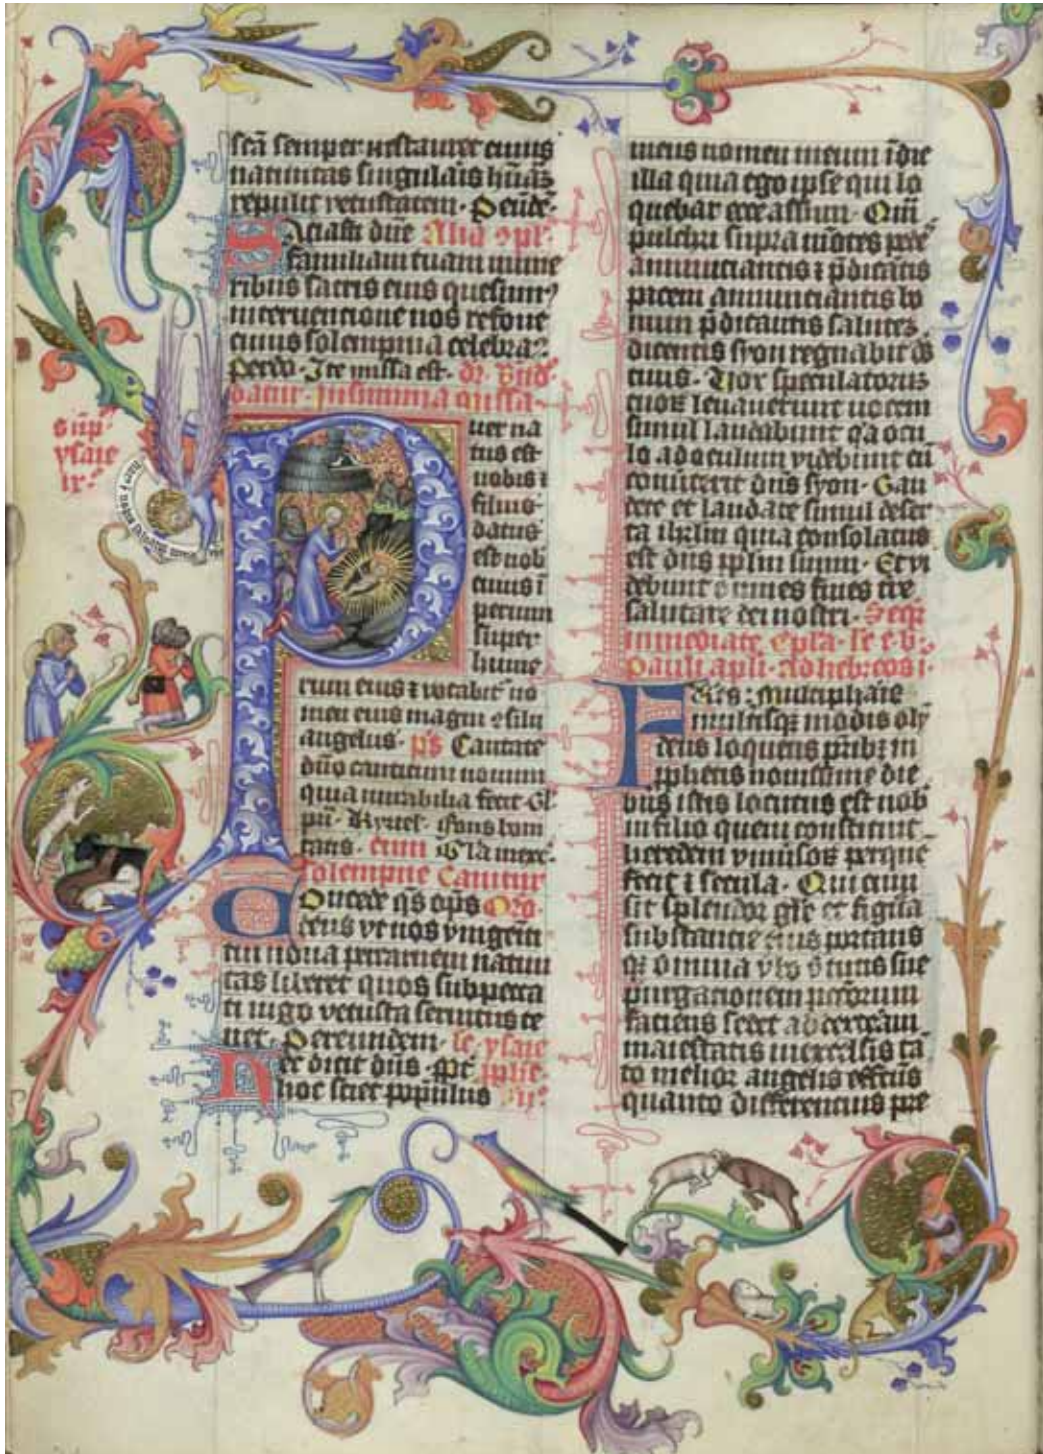 scã semper restauret cuius
natiuitas singularis hũaz
repulit vetustatem · Deinde ·
Saciasti dñe Alia ɔpl ·
familiam tuam mune
ribus sacris eius quesum⁹
interuentione nos refoue
cuius solempnia celebra ·
Per dõ · Ite missa est · dr · Bñd ·
datur · In summa missa
sup
ysaie
ix ·
Puer na
tus est
nobis ⁊
filius
datus
est nob
cuius ĩ
perium
super
hume
rum eius ⁊ vocabit no
men eius magni ɔsilii
angelus · ps Cantate
dño canticum nouum
quia mirabilia fecit · Gl
pñ · Kyriel · fons boni
tatis · cum
solempne Canitur
Concede qs oĩps Orõ ·
deus vt nos vnigeniti
tui noua per carnem natiui
tas liberet quos sub pecca
ti iugo vetusta seruitus te
net · Per eundem · le ysaie
Hec dicit dñs · pph̃e
hoc sciet populus
meus nomen meum ĩ die
illa quia ego ipse qui lo
quebar ecce assum · Qm̃
pulchri supra mõtes pe
annunciantis ⁊ p̃dicãtis
pacem annunciantis bo
num p̃dicantis salutez
dicentis syon regnabit ds
tuus · Vox speculatorum
tuoꝝ leuauerunt uocem
simul laudabunt qa ocu
lo ad oculum videbunt cũ
conuertit dñs syon · Gau
dete et laudate simul deser
ta ihrlm quia consolatus
est dñs pplm suum · Et vi
debunt omnes fines t̃re
salutare dei nostri · Seqr
inmediate Epla · le · e · b ·
Pauli apli · Ad hebreos i ·
Frẽs : Multipharie
multisqꝫ modis oli
deus loquens prĩbꝫ in
pphetis nouissime die
bus istis locutus est nob
in filio quem constituit
heredem vniũsoꝝ per que
fecit ⁊ secula · Qui cum
sit splendor glie et figura
substantie eius portans
qꝫ omnia v̓bo v̓tutis sue
purgationem pec̃orum
faciens sedet ad dexterãm
maiestatis in excelsis ta
to melior angelis effectus
quanto differencius pre